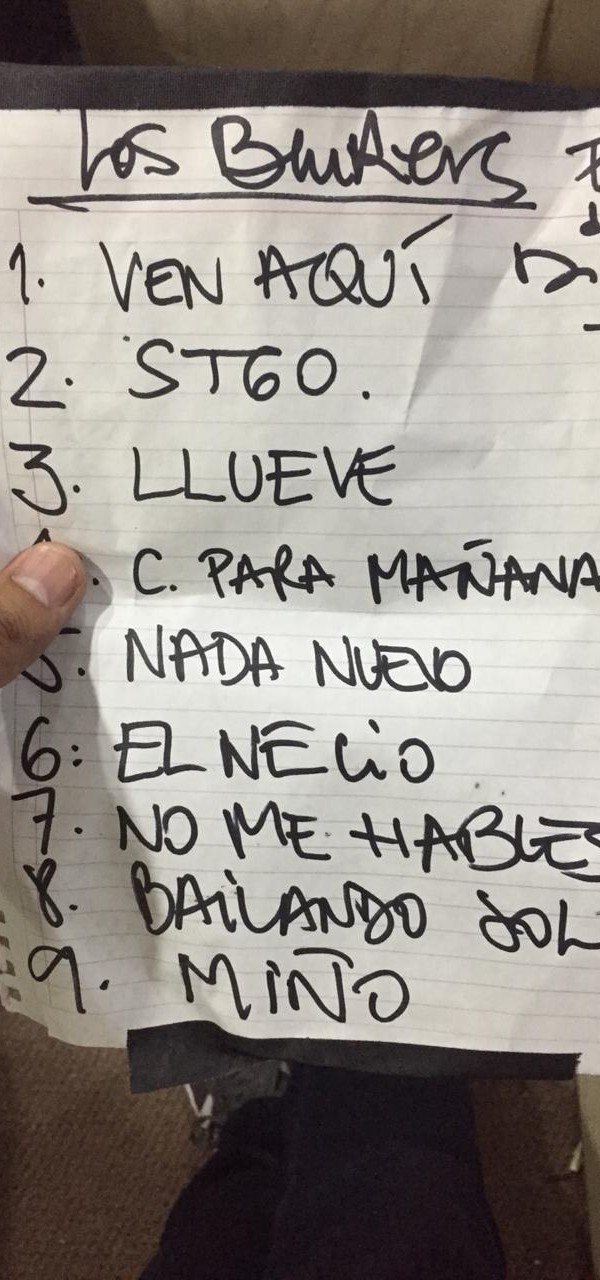 Los Bunkers
1. VEN AQUÍ
2. STGO.
3. LLUEVE
. C. PARA MAÑANA
5. NADA NUEVO
6: EL NECIO
7. NO ME HABLES
8. BAILANDO SOL
9. MIÑO